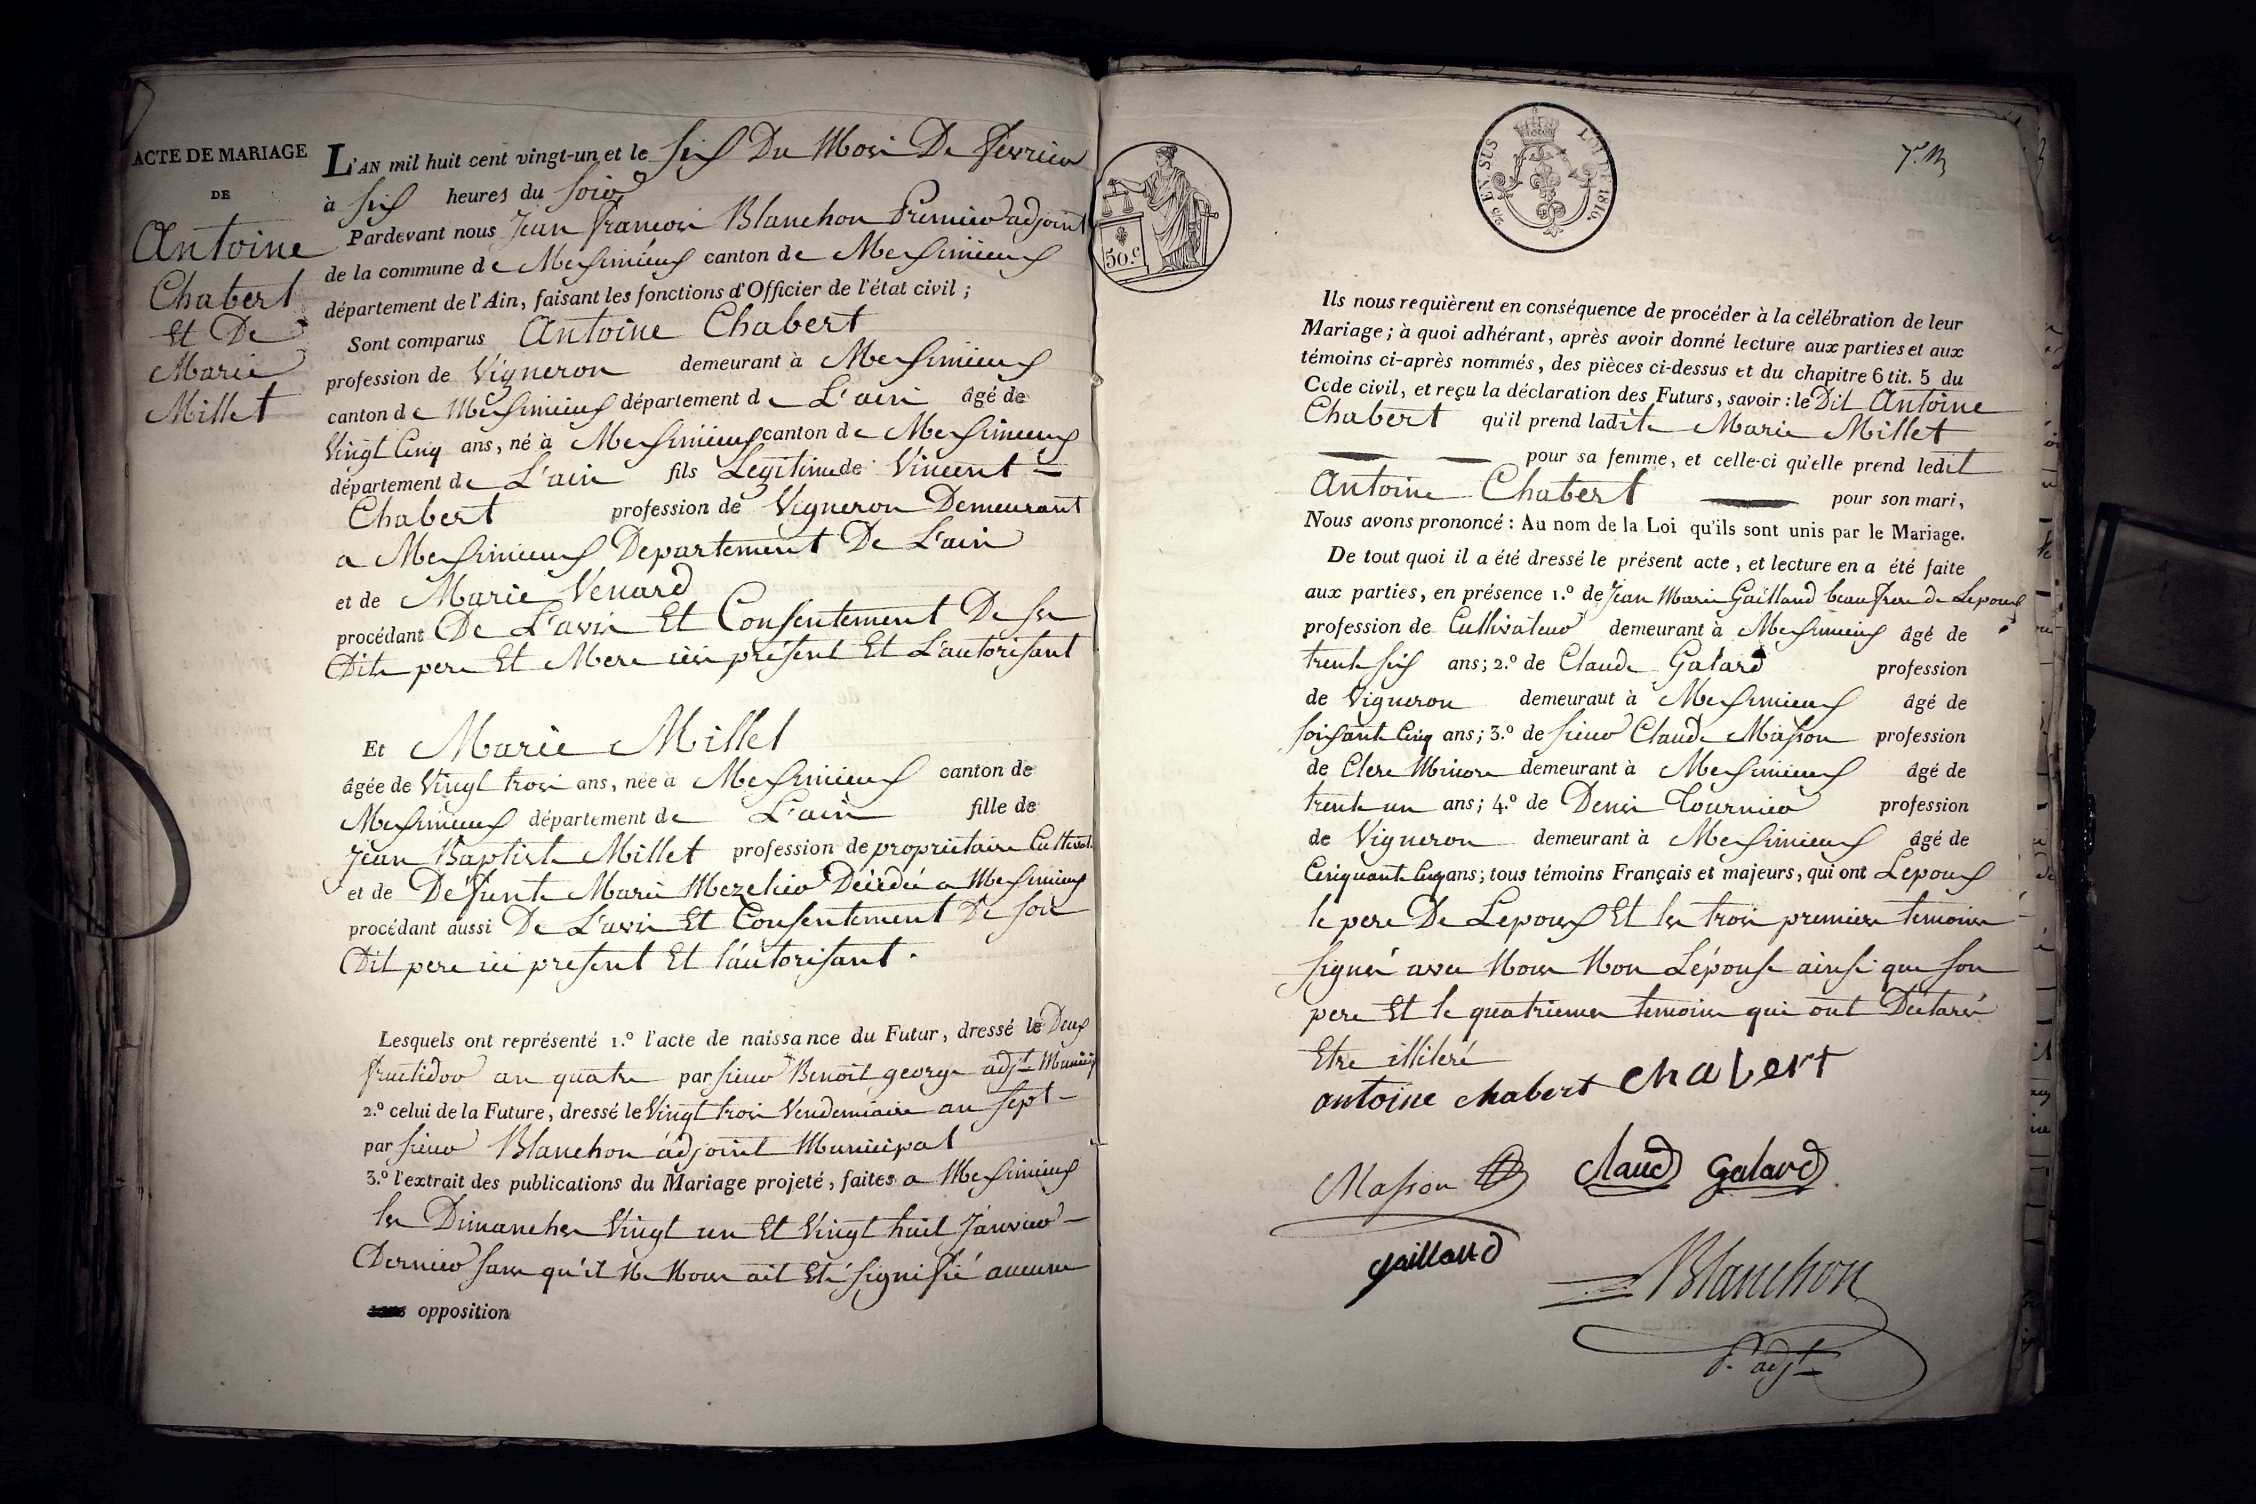 ACTE DE MARIAGE
DE
Antoine
Chabert
Et De
Marie
Millet
L'AN mil huit cent vingt-un et le six Du Mois De fevrier
à six heures du soir
Pardevant nous Jean françois Blanchon Premier adjoint
de la commune de Meximieux canton de Meximieux
département de l'Ain, faisant les fonctions d'Officier de l'état civil ;
Sont comparus Antoine Chabert
profession de Vigneron demeurant à Meximieux
canton de Meximieux département de L'ain âgé de
Vingt Cinq ans, né à Meximieux canton de Meximieux
département de L'ain fils Legitime de Vincent
Chabert profession de Vigneron Demeurant
a Meximieux Departement De L'ain
et de Marie Vénard
procédant De L'avis Et Consentement De ses
Dits pere Et Mere ici présent Et L'autorisant
Et Marie Millet
âgée de Vingt trois ans, née à Meximieux canton de
Meximieux département de L'ain fille de
Jean Baptiste Millet profession de propriétaire Cultivat.
et de Défunte Marie Mezelier Décédée a Meximieux
procédant aussi De L'avis Et Consentement De son
Dit pere ici present Et l'autorisant.
Lesquels ont représenté 1.º l'acte de naissance du Futur, dressé le Deux
fructidor an quatre par sieur Benoit george adjt Municip
2.º celui de la Future, dressé le Vingt trois Vendemiaire an sept
par sieur Blanchon adjoint Municipal
3.º l'extrait des publications du Mariage projeté, faites a Meximieux
les Dimanches Vingt un Et Vingt huit Janvier
Dernier sans qu'il Ne Nous ait Eté signifié aucune
opposition
50.c
25 EN SUS
LOI DE 1816.
Ils nous requièrent en conséquence de procéder à la célébration de leur
Mariage ; à quoi adhérant, après avoir donné lecture aux parties et aux
témoins ci-après nommés, des pièces ci-dessus et du chapitre 6 tit. 5 du
Code civil, et reçu la déclaration des Futurs, savoir : le Dit Antoine
Chabert qu'il prend ladite Marie Millet
pour sa femme, et celle-ci qu'elle prend ledit
Antoine Chabert pour son mari,
Nous avons prononcé : Au nom de la Loi qu'ils sont unis par le Mariage.
De tout quoi il a été dressé le présent acte, et lecture en a été faite
aux parties, en présence 1.º de Jean Marie Gailland beau frere de Lepoux
profession de Cultivateur demeurant à Meximieux âgé de
trente six ans ; 2.º de Claude Galard profession
de Vigneron demeuraut à Meximieux âgé de
soixante Cinq ans ; 3.º de sieur Claude Masson profession
de Clerc Minore demeurant à Meximieux âgé de
trente un ans ; 4.º de Denis Tournier profession
de Vigneron demeurant à Meximieux âgé de
Cinquante Cinq ans ; tous témoins Français et majeurs, qui ont Lepoux
le pere De Lepoux Et les trois premiers temoins
signés avec Nous Non Lépouse ainsi que son
pere Et le quatrieme temoins qui ont Déclarés
Etre illiteré
antoine chabert Chabert
Masson Claud Galard
gailland
Blanchon
P. adjt